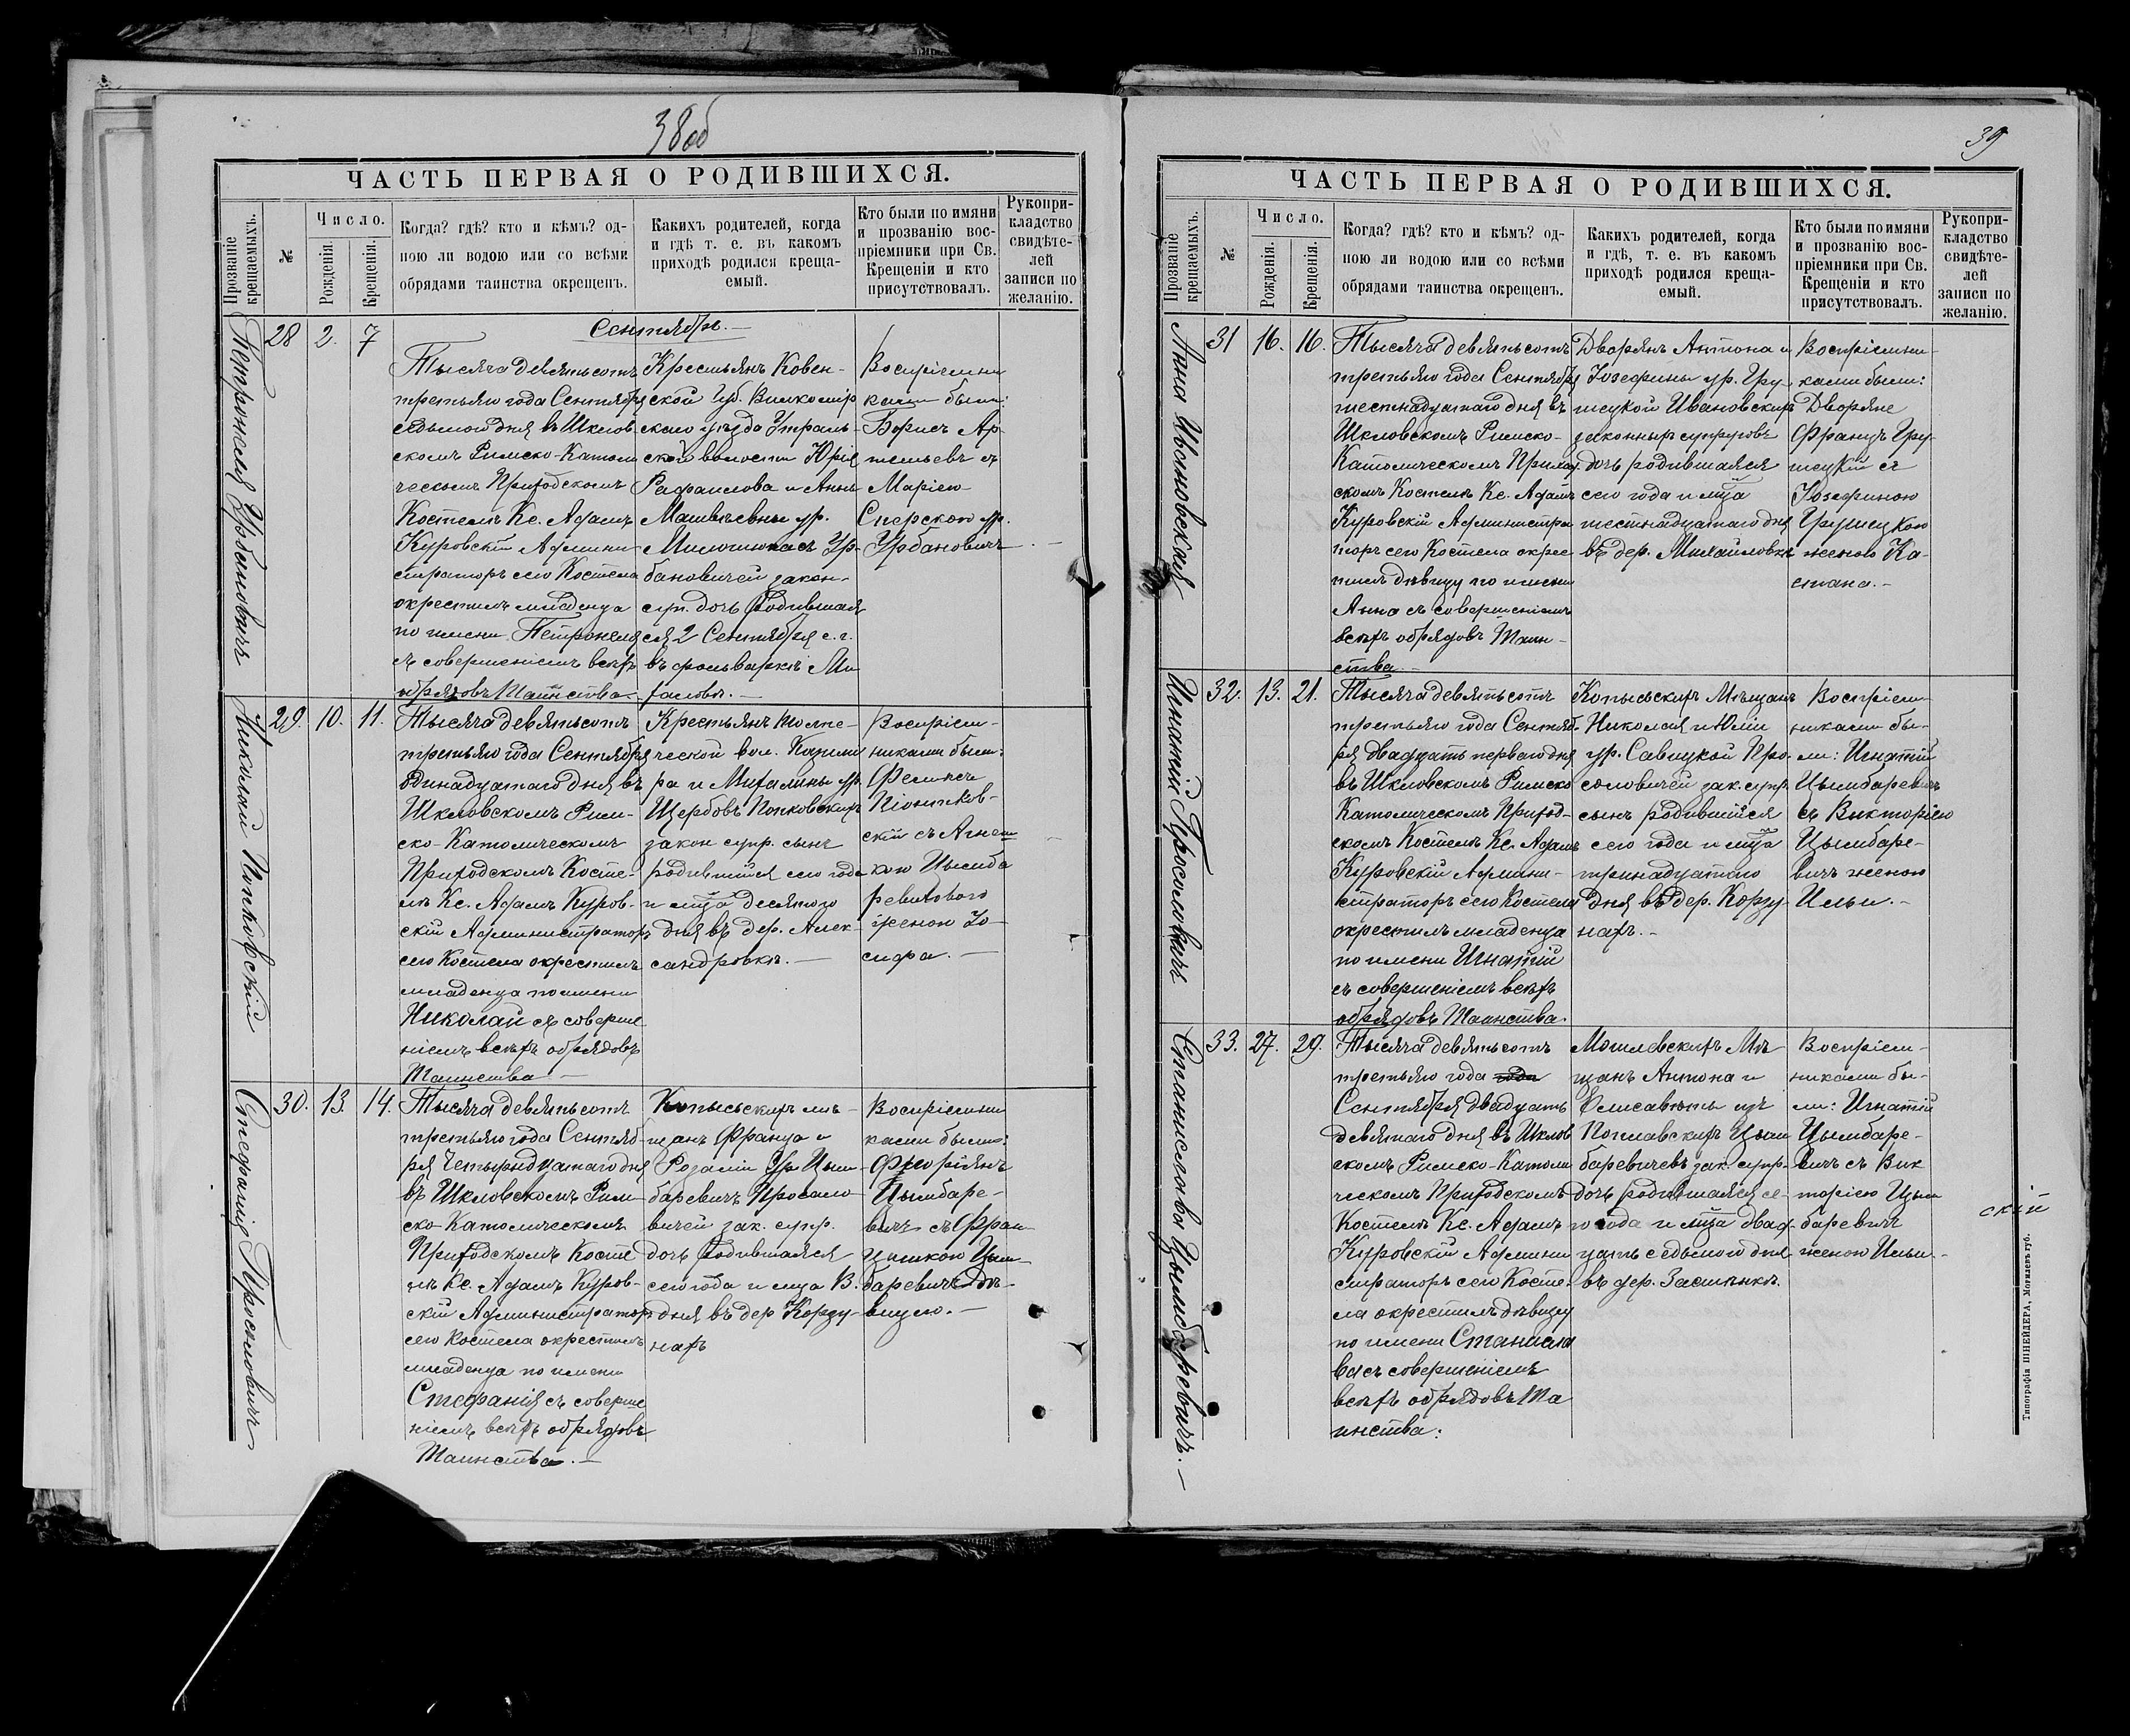 38об
ЧАСТЬ ПЕРВАЯ О РОДИВШИХСЯ.
Прозваніе крещаемыхъ.
№
Число.
Рожденія.
Крещенія.
Когда? гдѣ? кто и кѣмъ? од-
ною ли водою или со всѣми
обрядами таинства окрещенъ.
Какихъ родителей, когда
и гдѣ т. е. въ какомъ
приходѣ родился креща-
емый.
Кто были по имяни
и прозванію вос-
пріемники при Св.
Крещеніи и кто
присутствовалъ.
Рукопри-
кладство
свидѣте-
лей
записи по
желанію.
Сентябрь.
Петронеля Урбановичъ
28
2.
7
Тысяча девятьсотъ
третьяго года Сентября
седьмого дня въ Шклов
скомъ Римско-Католи
ческомъ Приходскомъ
Костелѣ Кс. Адамъ
Куровскій Админи
страторъ сего Костела
окрестилъ младенца
по имени Петронеля
съ совершеніемъ всѣхъ
обрядовъ Таинства
Крестьянъ Ковен-
ской Губ. Вилкомір
скаго уѣзда
ской волости Юрія
Рафаилова и Анны
Матвѣевны ур.
Ур-
бановичей закон-
суп. дочь родившая
ся 2 Сентября с. г.
въ фольваркѣ Ми
Воспріемни
ками были:
Борисъ Ар-
темьевъ съ
Маріею
ур.
Урбановичъ
Николай Попковскій
29.
10.
11.
Тысяча девятьсотъ
третьяго года Сентября
одинадцатаго дня въ
Шкловскомъ Рим-
ско-Католическомъ
Приходскомъ Косте-
лѣ Кс. Адамъ Куров-
скій Администраторъ
сего Костела окрестилъ
младенца по имени
Николай съ соверше
ніемъ всѣхъ обрядовъ
Таинства
Крестьянъ Толпе-
ческой вол. Казими
ра и Михалины ур.
Щербовъ Попковскихъ
закон супр. сынъ
родившійся сего года
и мѣсяца десятого
дня въ дер. Алек-
сандровкѣ.
Воспріем-
никами были:
Феликсъ
Піотков-
скій съ Агнеш
кою Цымба
ревичовою
женою Іо-
сифа.
Стефанія Просоловичъ
30.
13.
14.
Тысяча девятьсотъ
третьяго года Сентяб-
ря Четырнадцатаго дня
въ Шкловскомъ Рим
ско-Католическомъ
Приходскомъ Косте
лѣ Кс. Адамъ Куров-
скій Администраторъ
сего Костела окрестилъ
младенца по имени
Стефанія съ соверше
ніемъ всѣхъ обрядовъ
Таинства.
Копысьскихъ мѣ-
щанъ Франца и
Розаліи Ур Цым-
баревичъ Просоло-
вичей зак. супр.
дочь родившаяся
сего года и мца 13.
дня въ дер Корзу-
нахъ
Воспріемни
ками были:
Флоріянъ
Цымбаре-
вичъ съ Фран-
цишкою Цым-
баревичъ дѣ-
вицею.
39
ЧАСТЬ ПЕРВАЯ О РОДИВШИХСЯ.
Прозваніе крещаемыхъ.
№
Число.
Рожденія.
Крещенія.
Когда? гдѣ? кто и кѣмъ? од-
ною ли водою или со всѣми
обрядами таинства окрещенъ.
Какихъ родителей, когда
и гдѣ, т. е. въ какомъ
приходѣ родился креща-
емый.
Кто были по имяни
и прозванію вос-
пріемники при Св.
Крещеніи и кто
присутствовалъ.
Рукопри-
кладство
свидѣте-
лей
записи по
желанію.
Анна Ивановская
31
16.
16.
Тысяча девятьсотъ
третьяго года Сентября
шестнадцатаго дня въ
Шкловскомъ Римско-
Католическомъ Приход
скомъ Костелѣ Кс. Адамъ
Куровскій Администра
торъ сего Костела окре
стилъ дѣвицу по имени
Анна съ совершеніемъ
всѣхъ обрядовъ Таин-
ства.
Дворянъ Антона и
Іозефины ур. Гру-
шецкой Ивановскихъ
законныхъ супруговъ
дочь родившаяся
сего года и мца
шестнадцатаго дня
въ дер. Михайловкѣ
Воспріемни-
ками были:
Дворяне
Францъ Гру-
шецкій съ
Іозефиною
Грушецкою
женою Ка-
етана.
Игнатій Просоловичъ
32.
13.
21.
Тысяча девятьсотъ
третьяго года Сентяб-
ря двадцать перваго дня
въ Шкловскомъ Римско
Католическомъ Приход-
скомъ Костелѣ Кс. Адамъ
Куровскій Админи-
страторъ сего Костела
окрестилъ младенца
по имени Игнатій
съ совершеніемъ всѣхъ
обрядовъ Таинства.
Копысьскихъ Мѣщанъ
Николая и Юліи
ур. Савицкой Про-
соловичей зак. супр.
сынъ родившійся
сего года и мца
тринадцатаго
дня въ дер. Корзу-
нахъ.
Воспріем-
никами бы-
ли: Игнатій
Цымбаревичъ
съ Викторіею
Цымбаре-
вичъ женою
Ильи.
Станислава Цымбаревичъ.
33.
27.
29.
Тысяча девятьсотъ
третьяго года года
Сентября двадцать
девятаго дня въ Шклов
скомъ Римско-Католи
ческомъ Приходскомъ
Костелѣ Кс. Адамъ
Куровскій Админи
страторъ сего Косте-
ла окрестилъ дѣвицу
по имени Станисла
ва съ совершеніемъ
всѣхъ обрядовъ Та
инства.
Могилевскихъ Мѣ
щанъ Антона и
Елисаветы изъ
Поплавскихъ Цым
баревичевъ зак. супр.
дочь родившаяся се-
го года и мца двад-
цать седьмого дня
въ дер. Застѣнкѣ.
Воспріем-
никами бы-
ли: Игнатій
Цымбаре-
вичъ съ Вик
торіею Цым
баревичъ
женою Ильи.
скій
Типографія ШНЕЙДЕРА, Могилевъ губ.